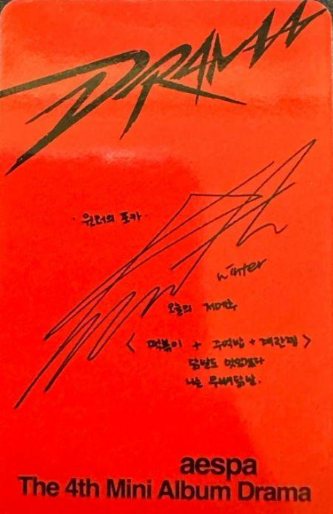 DRAMA
윈터의 포카
winter
오늘의 저메추
< 떡볶이 + 주먹밥 + 계란찜 >
닭발도 맛있겠다
나는 무뼈닭발.
aespa
The 4th Mini Album Drama